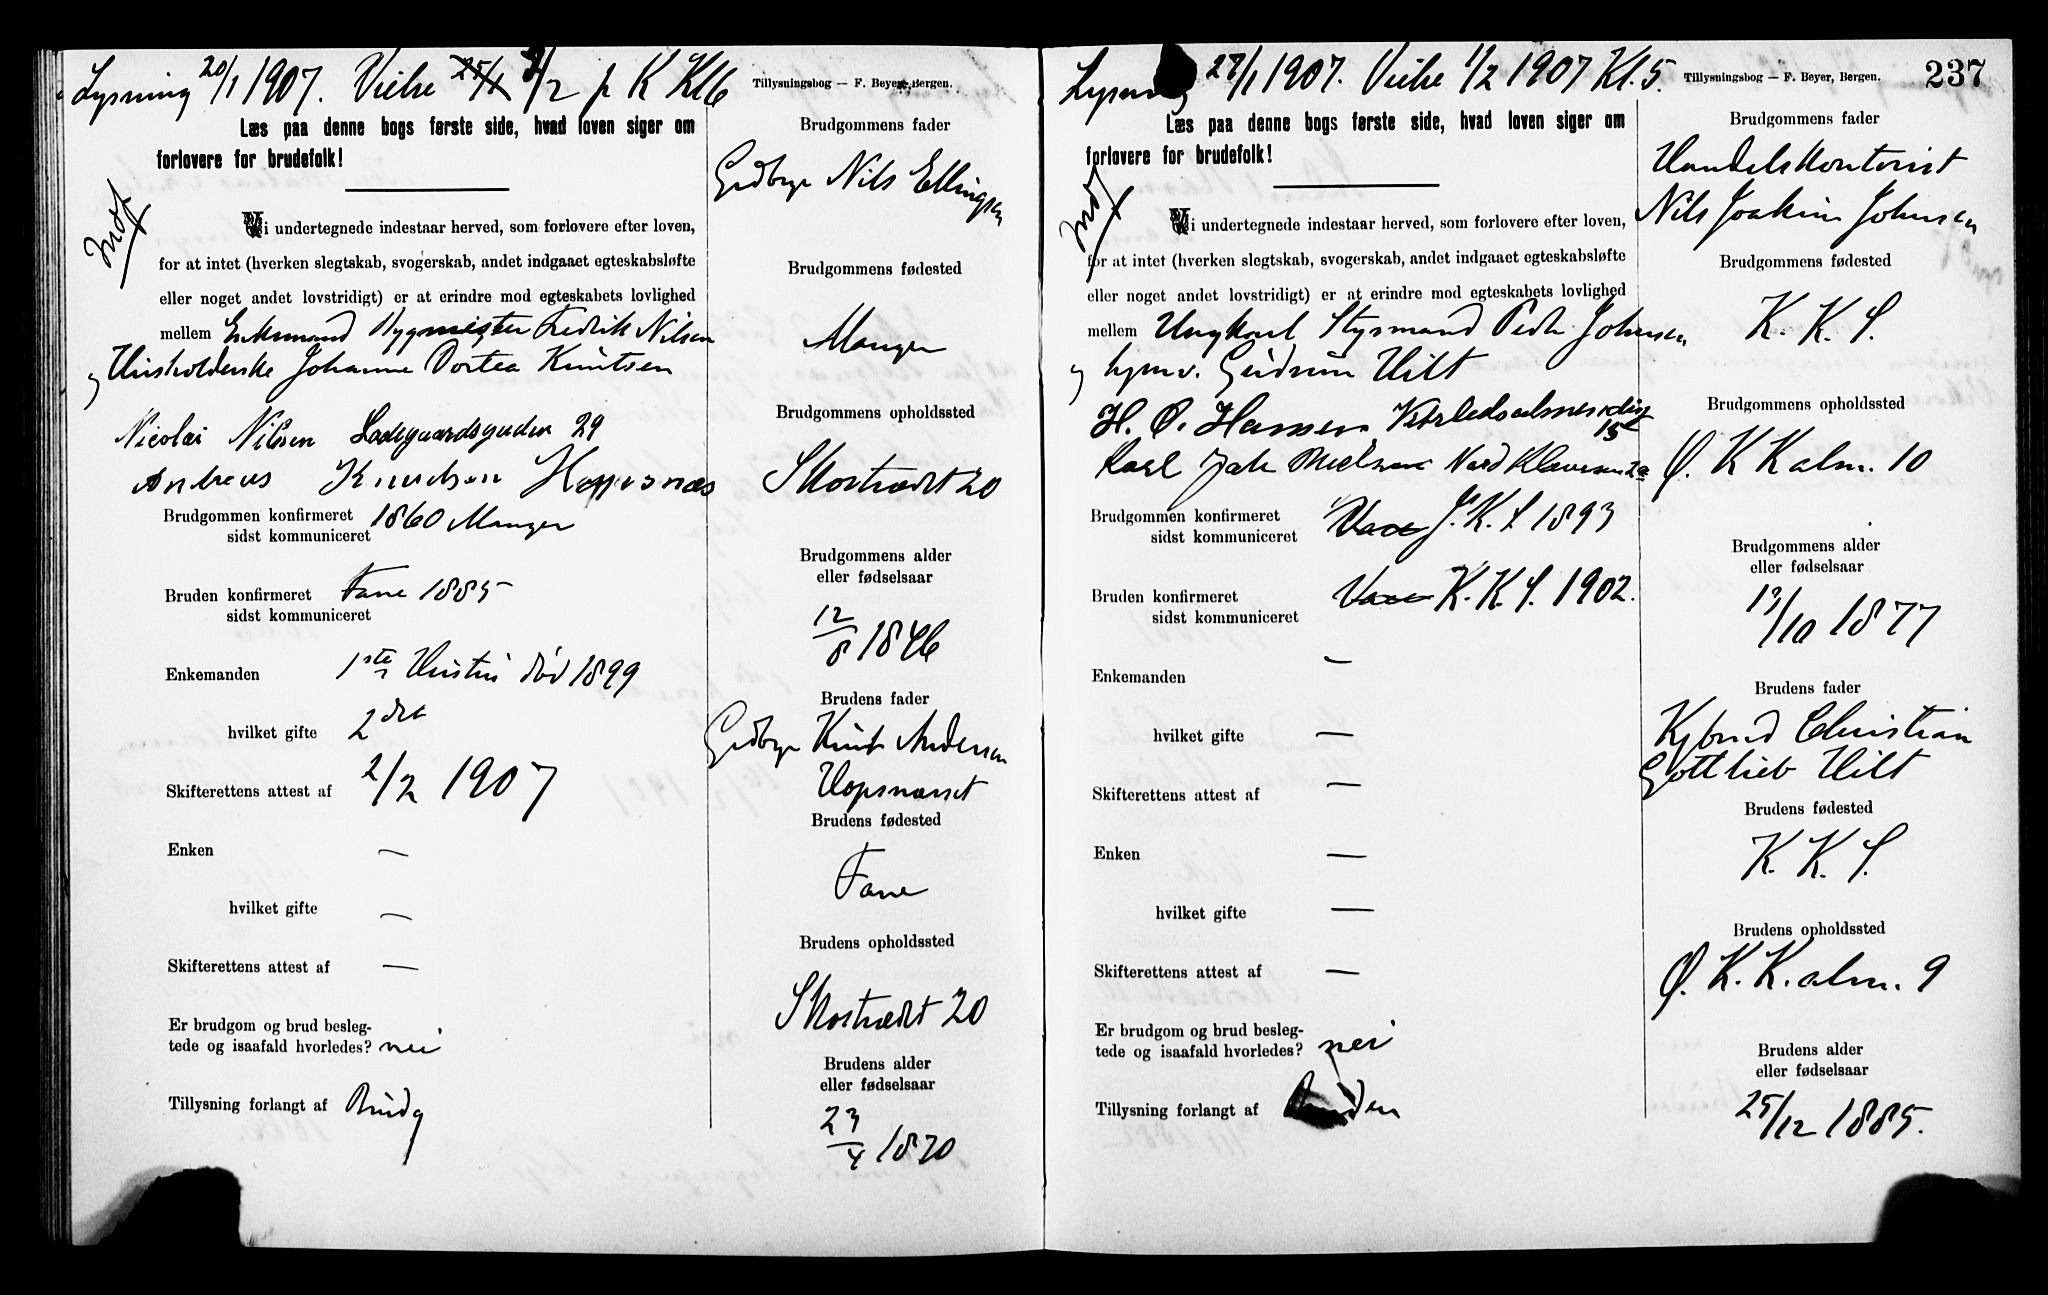 Lysning 20/1 1907. Vielse 25/1 3/2 p K Kl 6
Tillysningsbog — F. Beyer, Bergen.
Læs paa denne bogs første side, hvad loven siger om
forlovere for brudefolk!
Vi undertegnede indestaar herved, som forlovere efter loven,
for at intet (hverken slegtskab, svogerskab, andet indgaaet egteskabsløfte
eller noget andet lovstridigt) er at erindre mod egteskabets lovlighed
mellem Enkemand Bygmester Fredrik Nilsen
og Husholderske Johanne Dortea Knutsen
Nicolai Nilsen Ladegaardsgaden 29
Andreas Knudsen Hopsnæs
Brudgommen konfirmeret 1860 Manger
sidst kommuniceret
Bruden konfirmeret Fane 1885
sidst kommuniceret
Enkemanden 1ste Hustru død 1899
hvilket gifte 2det
Skifterettens attest af 2/2 1907
Enken —
hvilket gifte —
Skifterettens attest af —
Er brudgom og brud besleg-
tede og isaafald hvorledes? nei
Tillysning forlangt af Brudg
Brudgommens fader
Grdbrgr Nils Ellingsen
Brudgommens fødested
Manger
Brudgommens opholdssted
Skostrædet 20
Brudgommens alder
eller fødselsaar
12/8 1846
Brudens fader
Grdbrgr Knut Andersen
Hopsnæsset
Brudens fødested
Fane
Brudens opholdssted
Skostrædet 20
Brudens alder
eller fødselsaar
23/4 1870
Lysning 27/1 1907. Vielse 1/2 1907 Kl. 5.
Tillysningsbog — F. Beyer, Bergen.
237
Læs paa denne bogs første side, hvad loven siger om
forlovere for brudefolk!
Vi undertegnede indestaar herved, som forlovere efter loven,
for at intet (hverken slegtskab, svogerskab, andet indgaaet egteskabsløfte
eller noget andet lovstridigt) er at erindre mod egteskabets lovlighed
mellem Ungkarl Styrmand Peder Johnsen
og hjmv. Gudrun Hilt
H. O. Hansen 15
Karl Nielsen
Brudgommen konfirmeret J. K. S 1893
sidst kommuniceret
Bruden konfirmeret K. K. S. 1902.
sidst kommuniceret
Enkemanden —
hvilket gifte —
Skifterettens attest af —
Enken —
hvilket gifte —
Skifterettens attest af —
Er brudgom og brud besleg-
tede og isaafald hvorledes? nei
Tillysning forlangt af Bruden
Brudgommens fader
Handelskontorist
Nils Joakim Johnsen
Brudgommens fødested
K. K. S.
Brudgommens opholdssted
Ø. K Kalm. 10
Brudgommens alder
eller fødselsaar
13/10 1877
Brudens fader
Christian
Gottlieb Hilt
Brudens fødested
K. K. S.
Brudens opholdssted
Ø. K. K. alm. 9
Brudens alder
eller fødselsaar
25/12 1885.